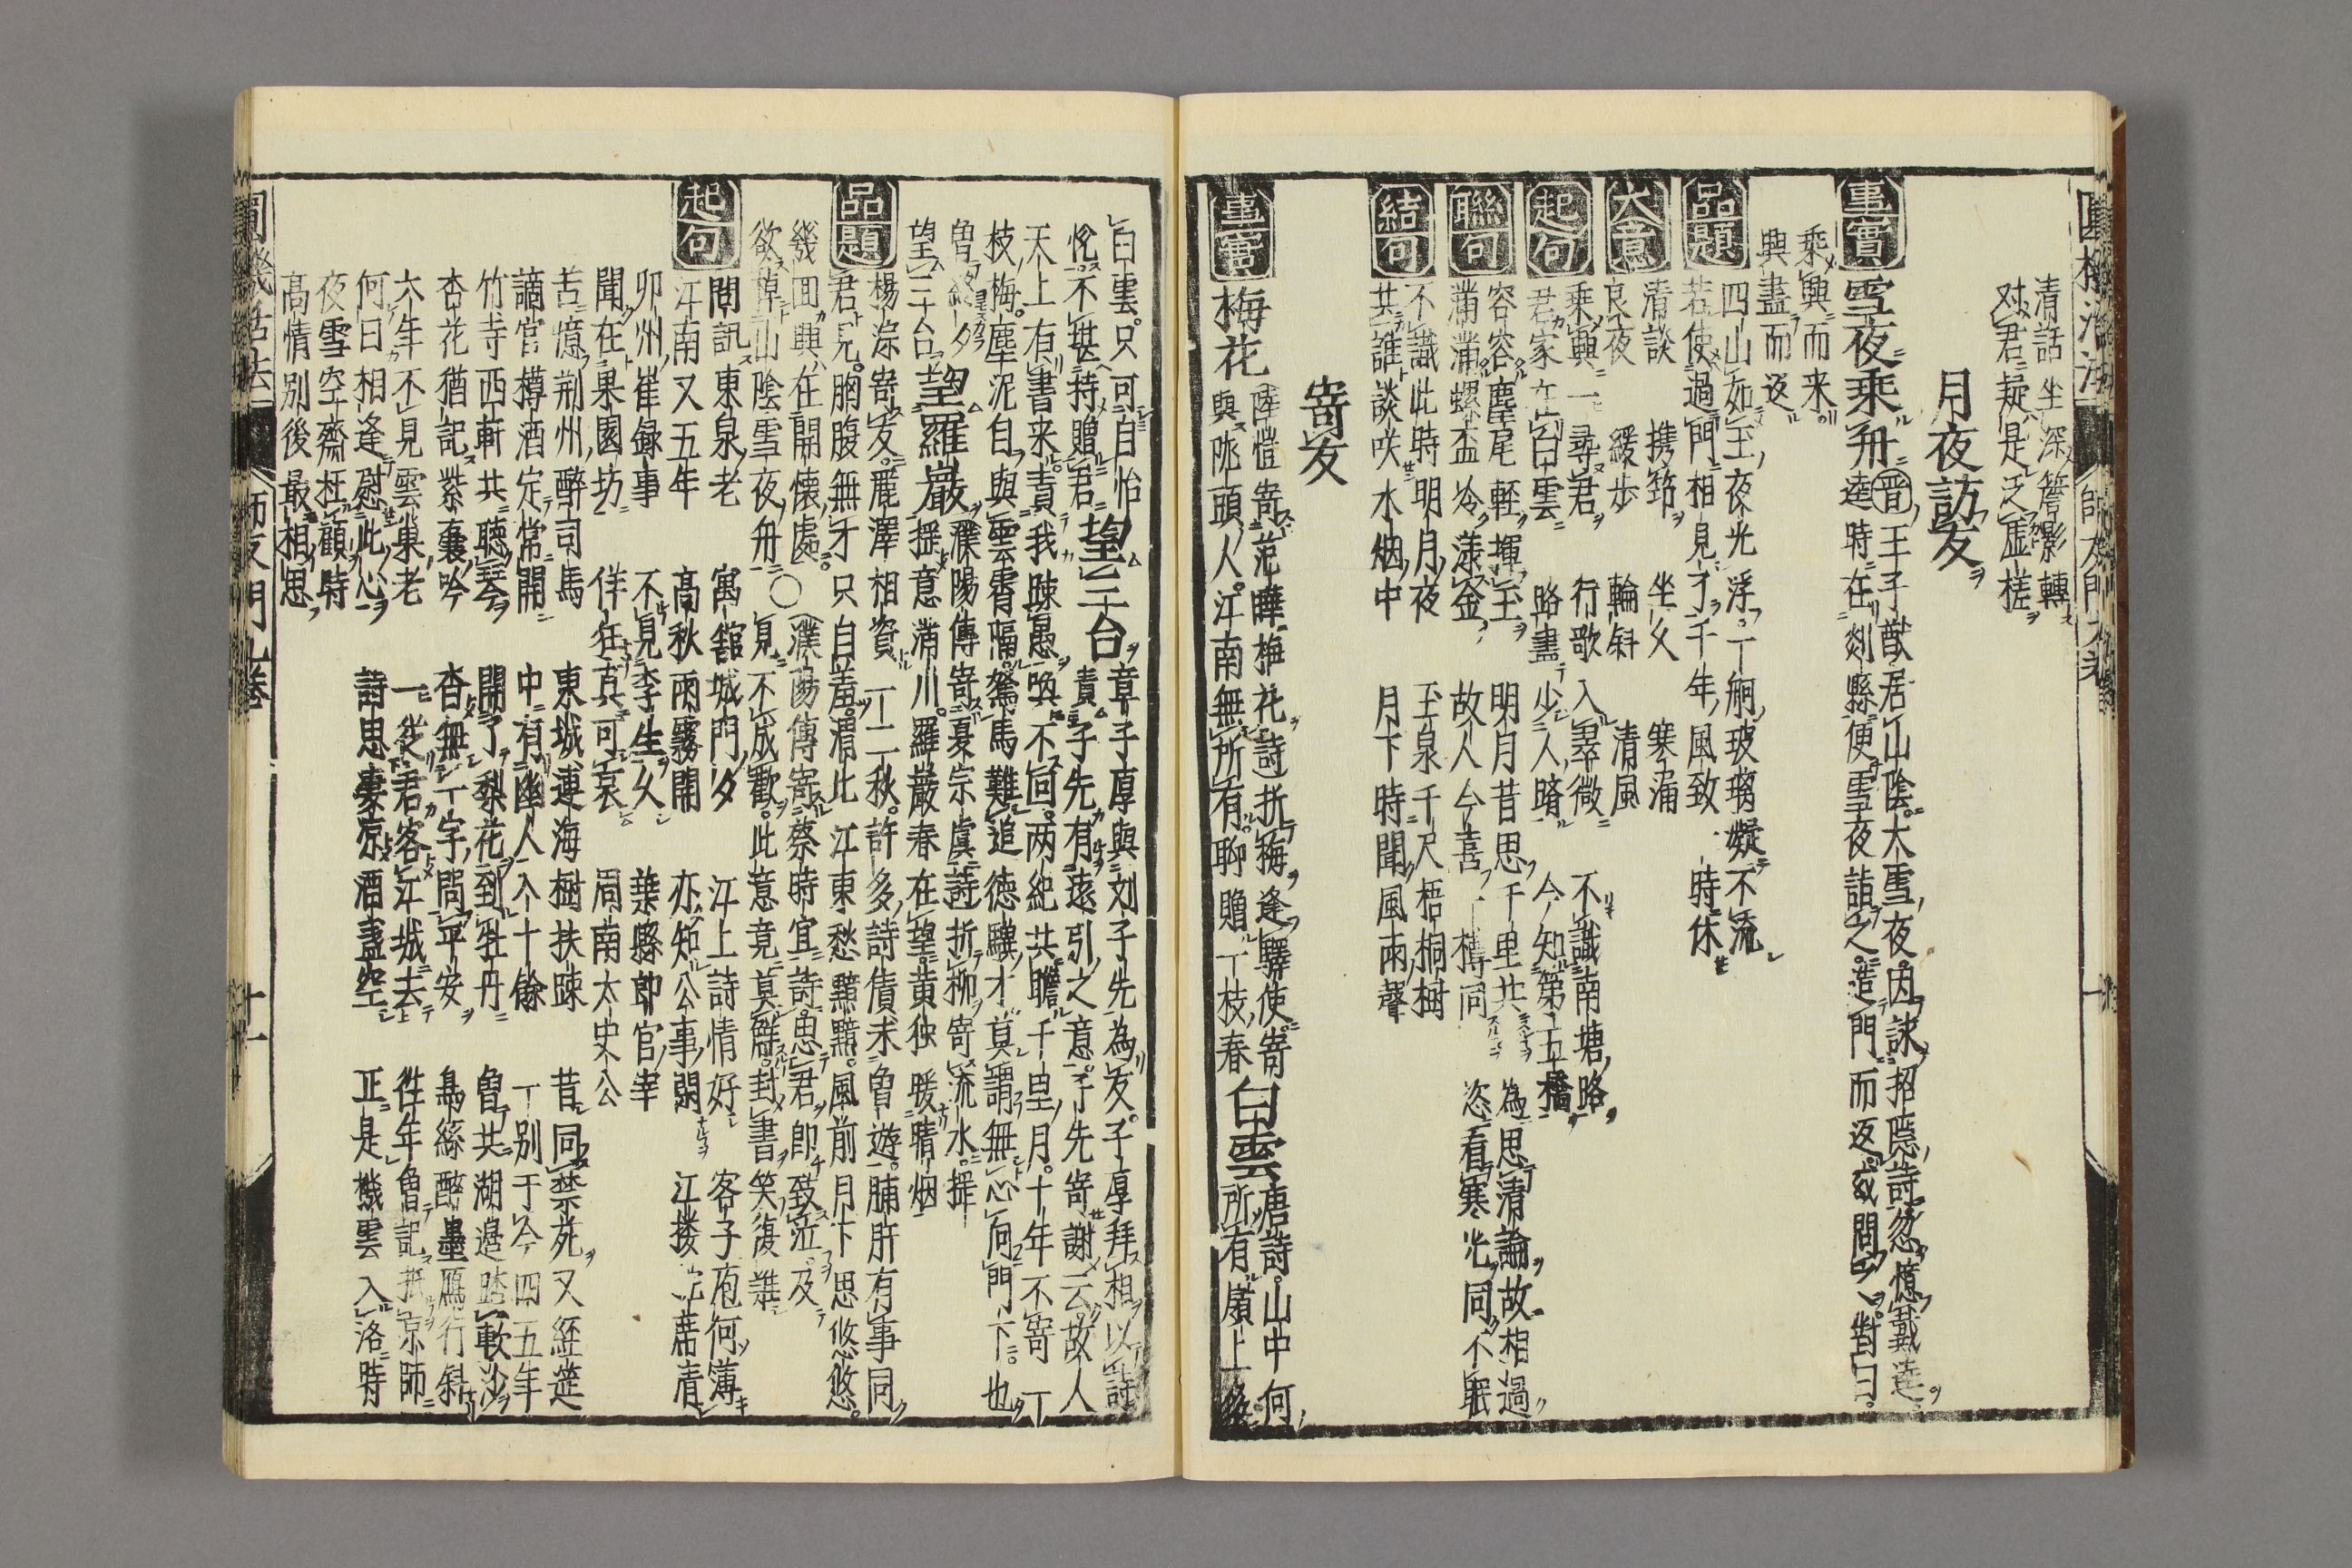 清話 坐深簷影轉
对君疑是泛虚槎
月夜訪友
事實
雪夜乘舟
逵時在剡縣便雪夜詣之造門而返或問之對曰
晉王子猷居山陰大雪夜因詠招隱詩忽憶戴逵
乘興而来
興盡而返
品題
四山如玉夜光浮一舸玻瓈凝不流
若使過門相見了千年風致一時休
大意
清談 携筇 坐久 寒涌
良夜 緩步 輪斜 清風
起句
乘興一尋君 行歌入翠微 不識南塘路
君家在白雲 路盡少人暗 今知第五橋
聯句
容容塵尾輕揮玉 明月昔思千里共 為思清論故相過
滿滿螺盃冷漾金 故人今喜一樽同 恣看寒光同不眠
結句
不識此時明月夜 玉泉千尺梧桐樹
共誰談咲水烟中 月下時聞風雨聲
寄友
事實
梅花
陸愷寄范曄梅花詩折梅逢驛使寄
與隴頭人江南無所有聊贈一枝春
白雲
唐詩山中何
所有嶺上多
白雲只可自怡
悅不堪持贈君
望三台
章子厚與刘子先為友子厚拜相以詩
責子先有遠引之意子先寄謝云故人
天上有書来責我踈愚喚不回两紀共瞻千里月十年不寄一
枝梅塵泥自與雲霄隔駑馬難追德驥才莫謂無心向門下也
曾終夕
望三台
望羅巖
濮陽傳寄夏宗虞詩折柳寄流水搔
搔意滿川羅巖春在望黄独暖晴烟
品題
楊淙寄友麗澤相資一二秋許多詩債未曾遊脯肝有事同
君見胸腹無牙只自羞渭北江東愁黯黯風前月下思悠悠
幾回興在開懷處〇濮陽傳寄蔡時宜詩思君即致泣及
欲棹山陰雪夜舟見不成歡此意竟莫解封書笑復難
起句
問訊東泉老 寓館城門夕 江上詩情好 客子庖何薄
江南又五年 高秋雨霧開 亦知公事閑 江楼席清
卯州崔録事 不見李生久 葉縣郎官宰
聞在果園坊 佯狂真可哀 周南太史公
苦憶荆州醉司馬 東城連海樹扶踈 昔同禁苑又經筵
謫官樽酒定常開 中有幽人八十餘 一别于今四五年
竹寺西軒共聽琴 開了梨花到牡丹 曽共湖邉踏軟沙
杏花猶記紫囊吟 杳無一字問平安 烏絲醉墨鴈行斜
六年不見雲巢老 一從君客江城去 往年曽記京師
何日相逢慰此心 詩思凄凉酒盡空 正是機雲入洛時
夜雪空齋枉顧時
高情别後最相思